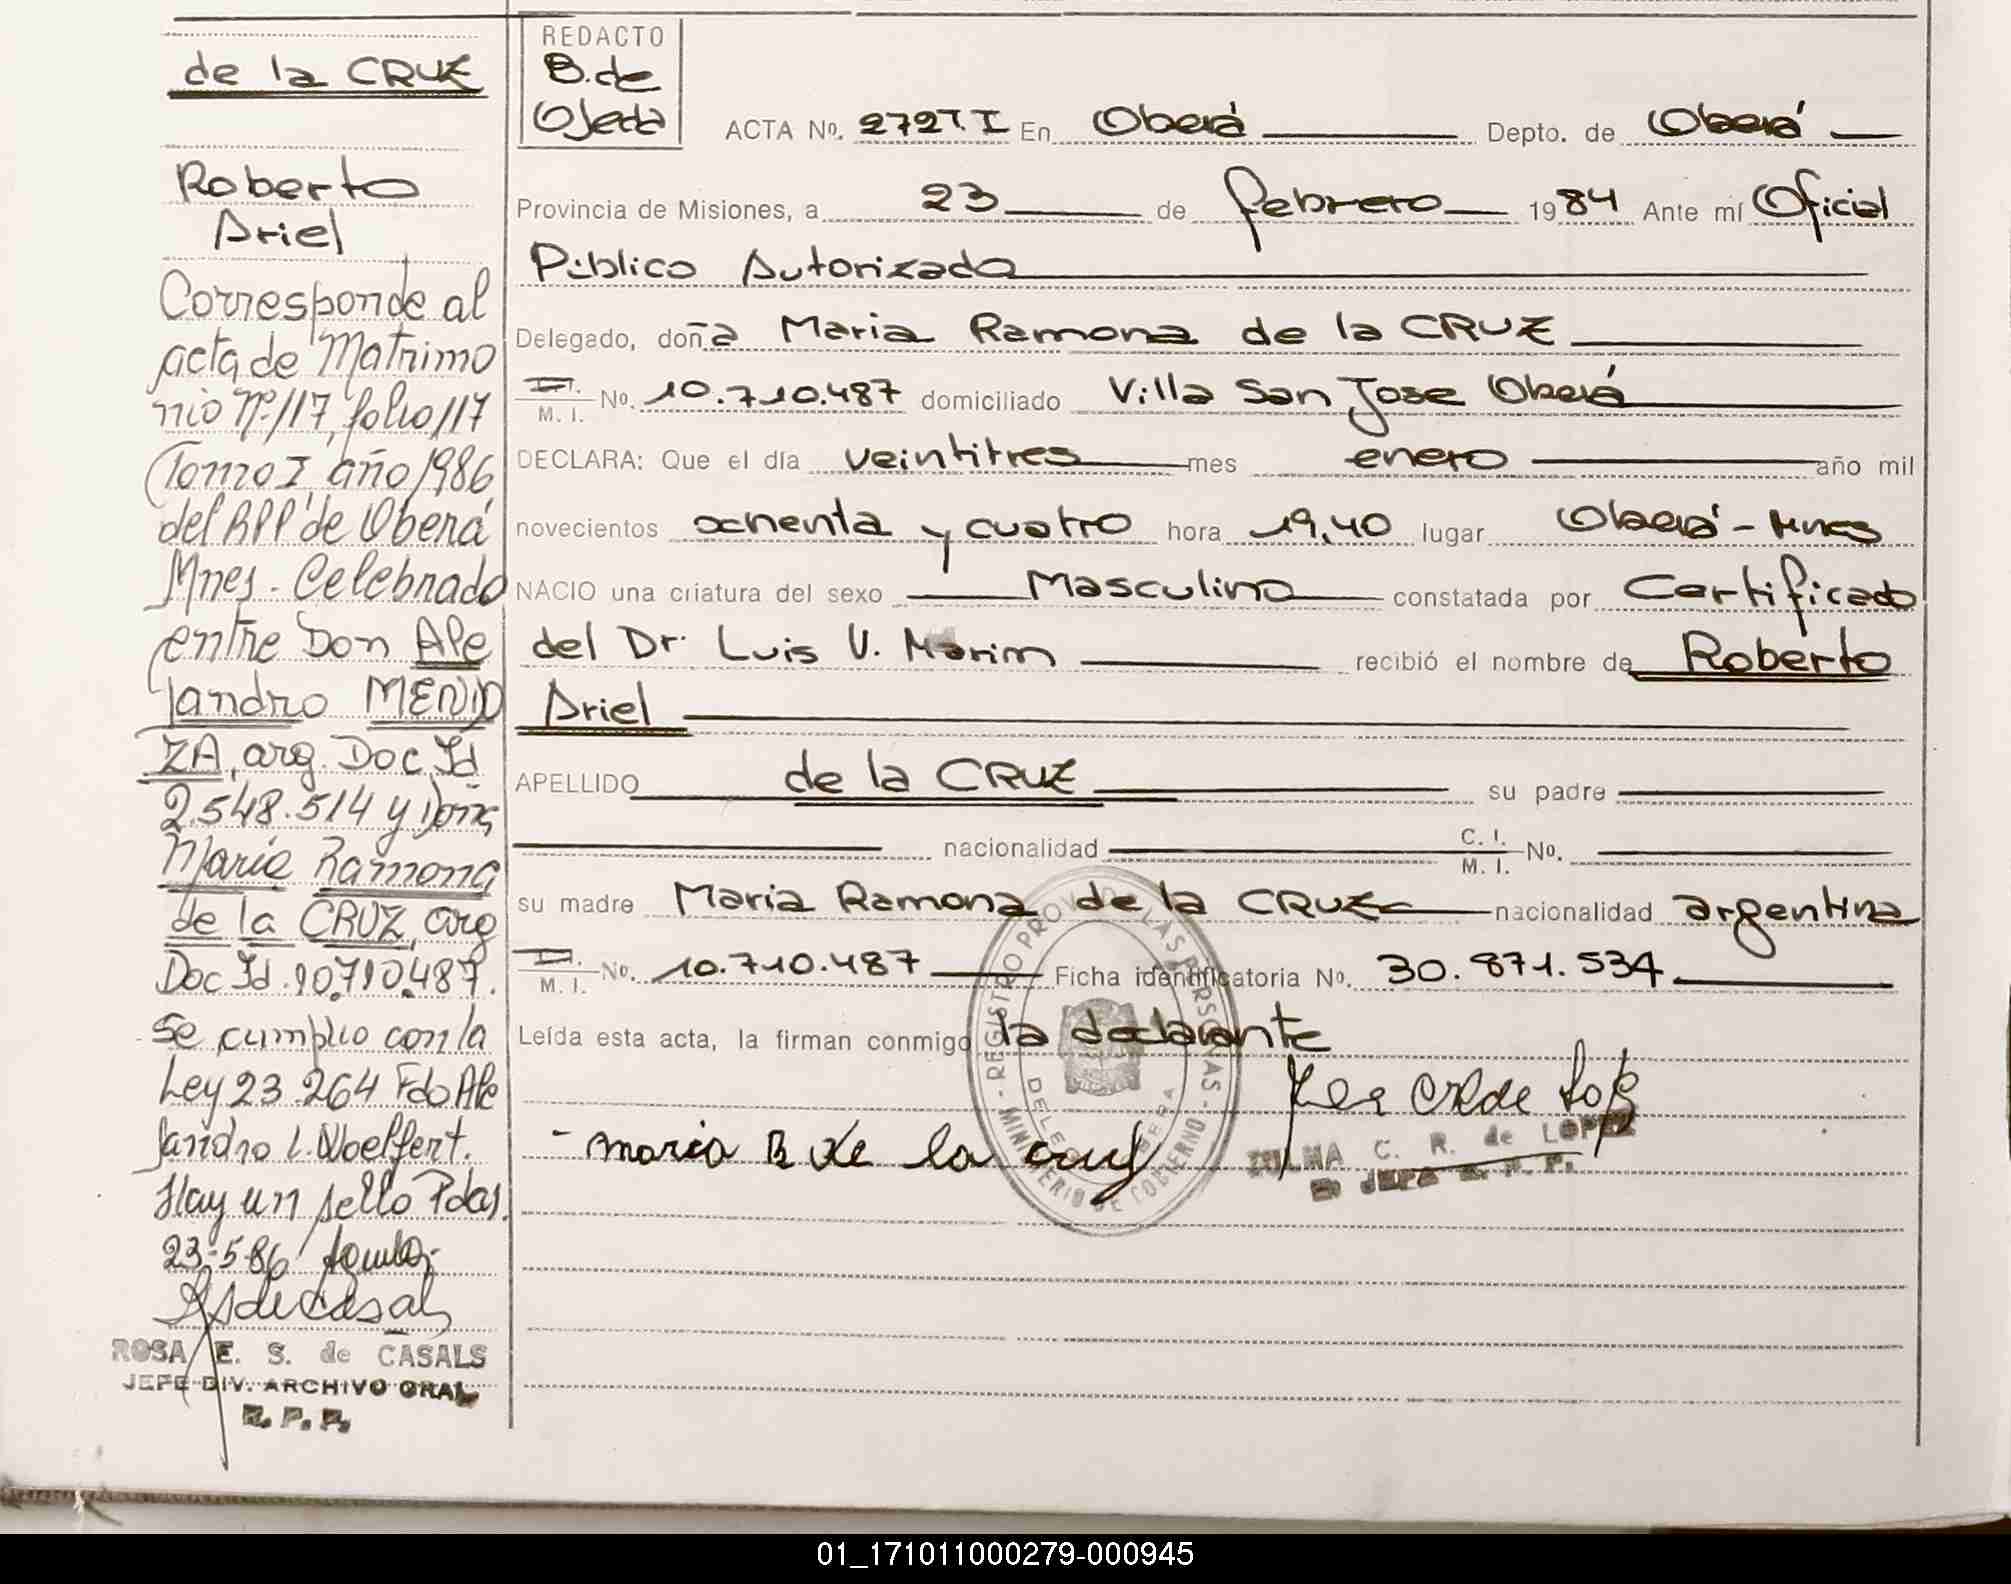 de la CRUZ
Roberto
Ariel
Corresponde al
acta de Matrimo
nio Nº 117, folio 117
Tomo I año 1986
del RPP de Oberá
Mnes. Celebrado
entre Don Ale
jandro MENDO
ZA, arg. Doc. Id
2.548.514 y Doña
Maria Ramona
de la CRUZ, arg
Doc Id. 10.710.487.
Se cumplio con la
Ley 23.264 Fdo Ale
jandro L. Woelfert.
Hay un sello Pdas.
23-5-86
ROSA E. S. de CASALS
JEFE DIV. ARCHIVO GRAL
R. P. P.
REDACTO
B. de
Ojeda
ACTA No. 272 T. I En Oberá Depto. de Oberá
Provincia de Misiones, a 23 de febrero 1984 Ante mí Oficial
Público Autorizado
Delegado, doña Maria Ramona de la CRUZ
M. I. No. 10.710.487 domiciliado Villa San Jose Oberá
DECLARA: Que el día veintitres mes enero año mil
novecientos ochenta y cuatro hora 19,40 lugar Oberá - Mnes
NACIO una criatura del sexo Masculino constatada por Certificado
del Dr. Luis V. Marim recibió el nombre de Roberto
Ariel
APELLIDO de la CRUZ su padre
nacionalidad C. I. M. I. No.
su madre Maria Ramona de la CRUZ nacionalidad argentina
M. I. No. 10.710.487 Ficha identificatoria No. 30.871.534
Leída esta acta, la firman conmigo la declarante
maria R de la cruz
ZULMA C. R. de LOPEZ
JEFE R. P. P.
REGISTRO PROV. DE LAS PERSONAS - MINISTERIO DE GOBIERNO -
01_171011000279-000945